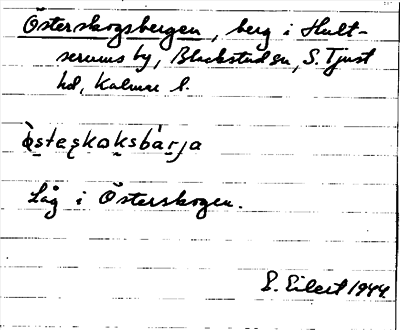 Österskogsbergen, berg i Hult-
serums by, Blackstad sn, S. Tjust
hd, Kalmar l.
östeskoksbarja
Låg i Österskogen.
E. Eilert 1944.